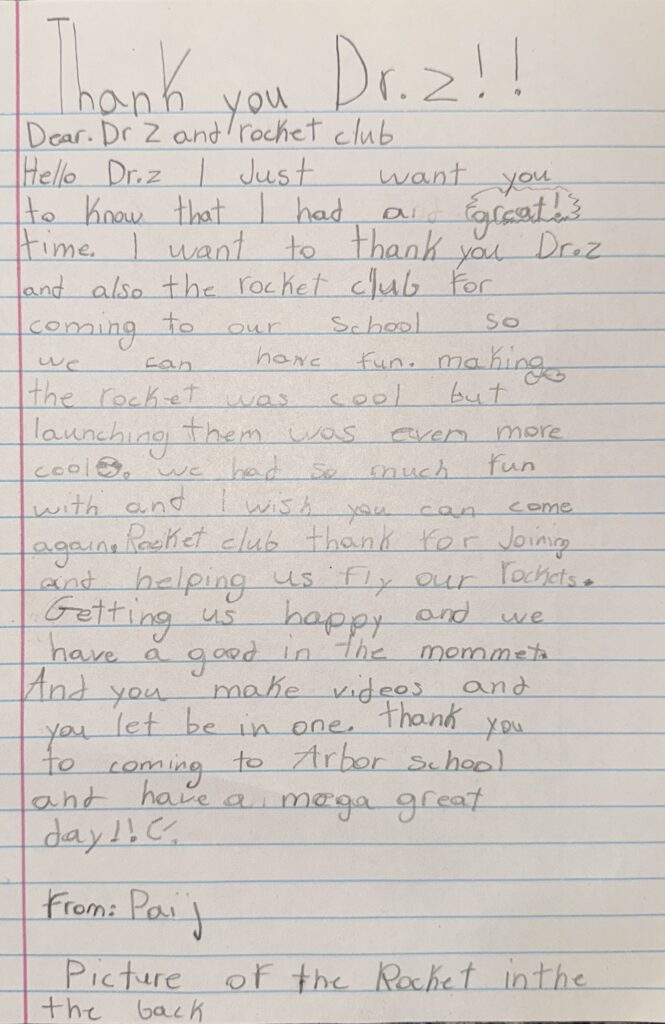 Thank you Dr. z!!
Dear. Dr Z and rocket club
Hello Dr.z I Just want you
to know that I had a great!
time. I want to thank you Dr.z
and also the rocket club for
coming to our school so
we can have fun. making
the rocket was cool but
launching them was even more
cool. we had so much fun
with and I wish you can come
again. Rocket club thank for Joining
and helping us fly our rockets.
Getting us happy and we
have a good in the mommet.
And you make videos and
you let be in one. thank you
to coming to Arbor school
and have a mega great
day!!
From: Paij
Picture of the Rocket in the
the back